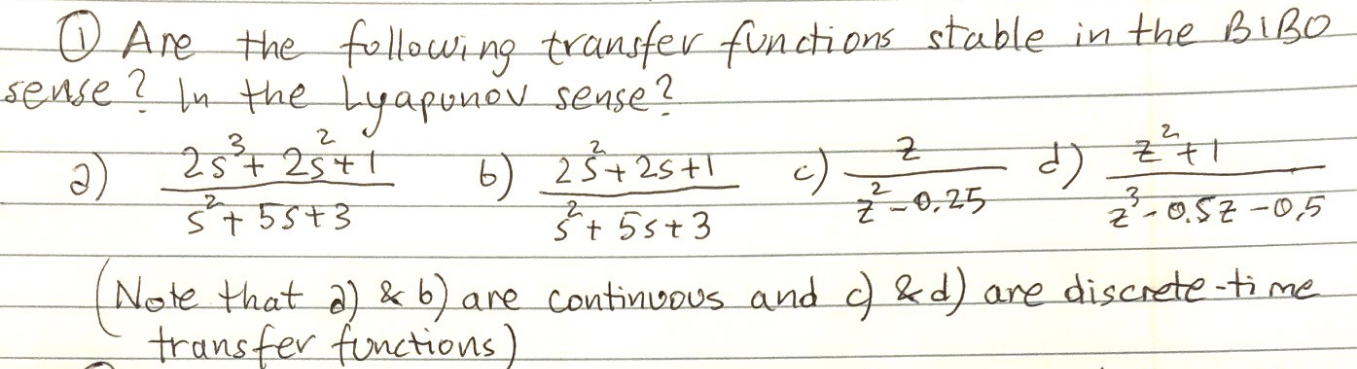 ① Are the following transfer functions stable in the BIBO
sense? In the Lyapunov sense?
a) (2s³+2s²+1)/(s²+5s+3) b) (2s²+2s+1)/(s²+5s+3) c) z/(z²-0.25) d) (z²+1)/(z³-0.5z-0,5)
(Note that a) & b) are continuous and c) & d) are discrete-time
transfer functions)